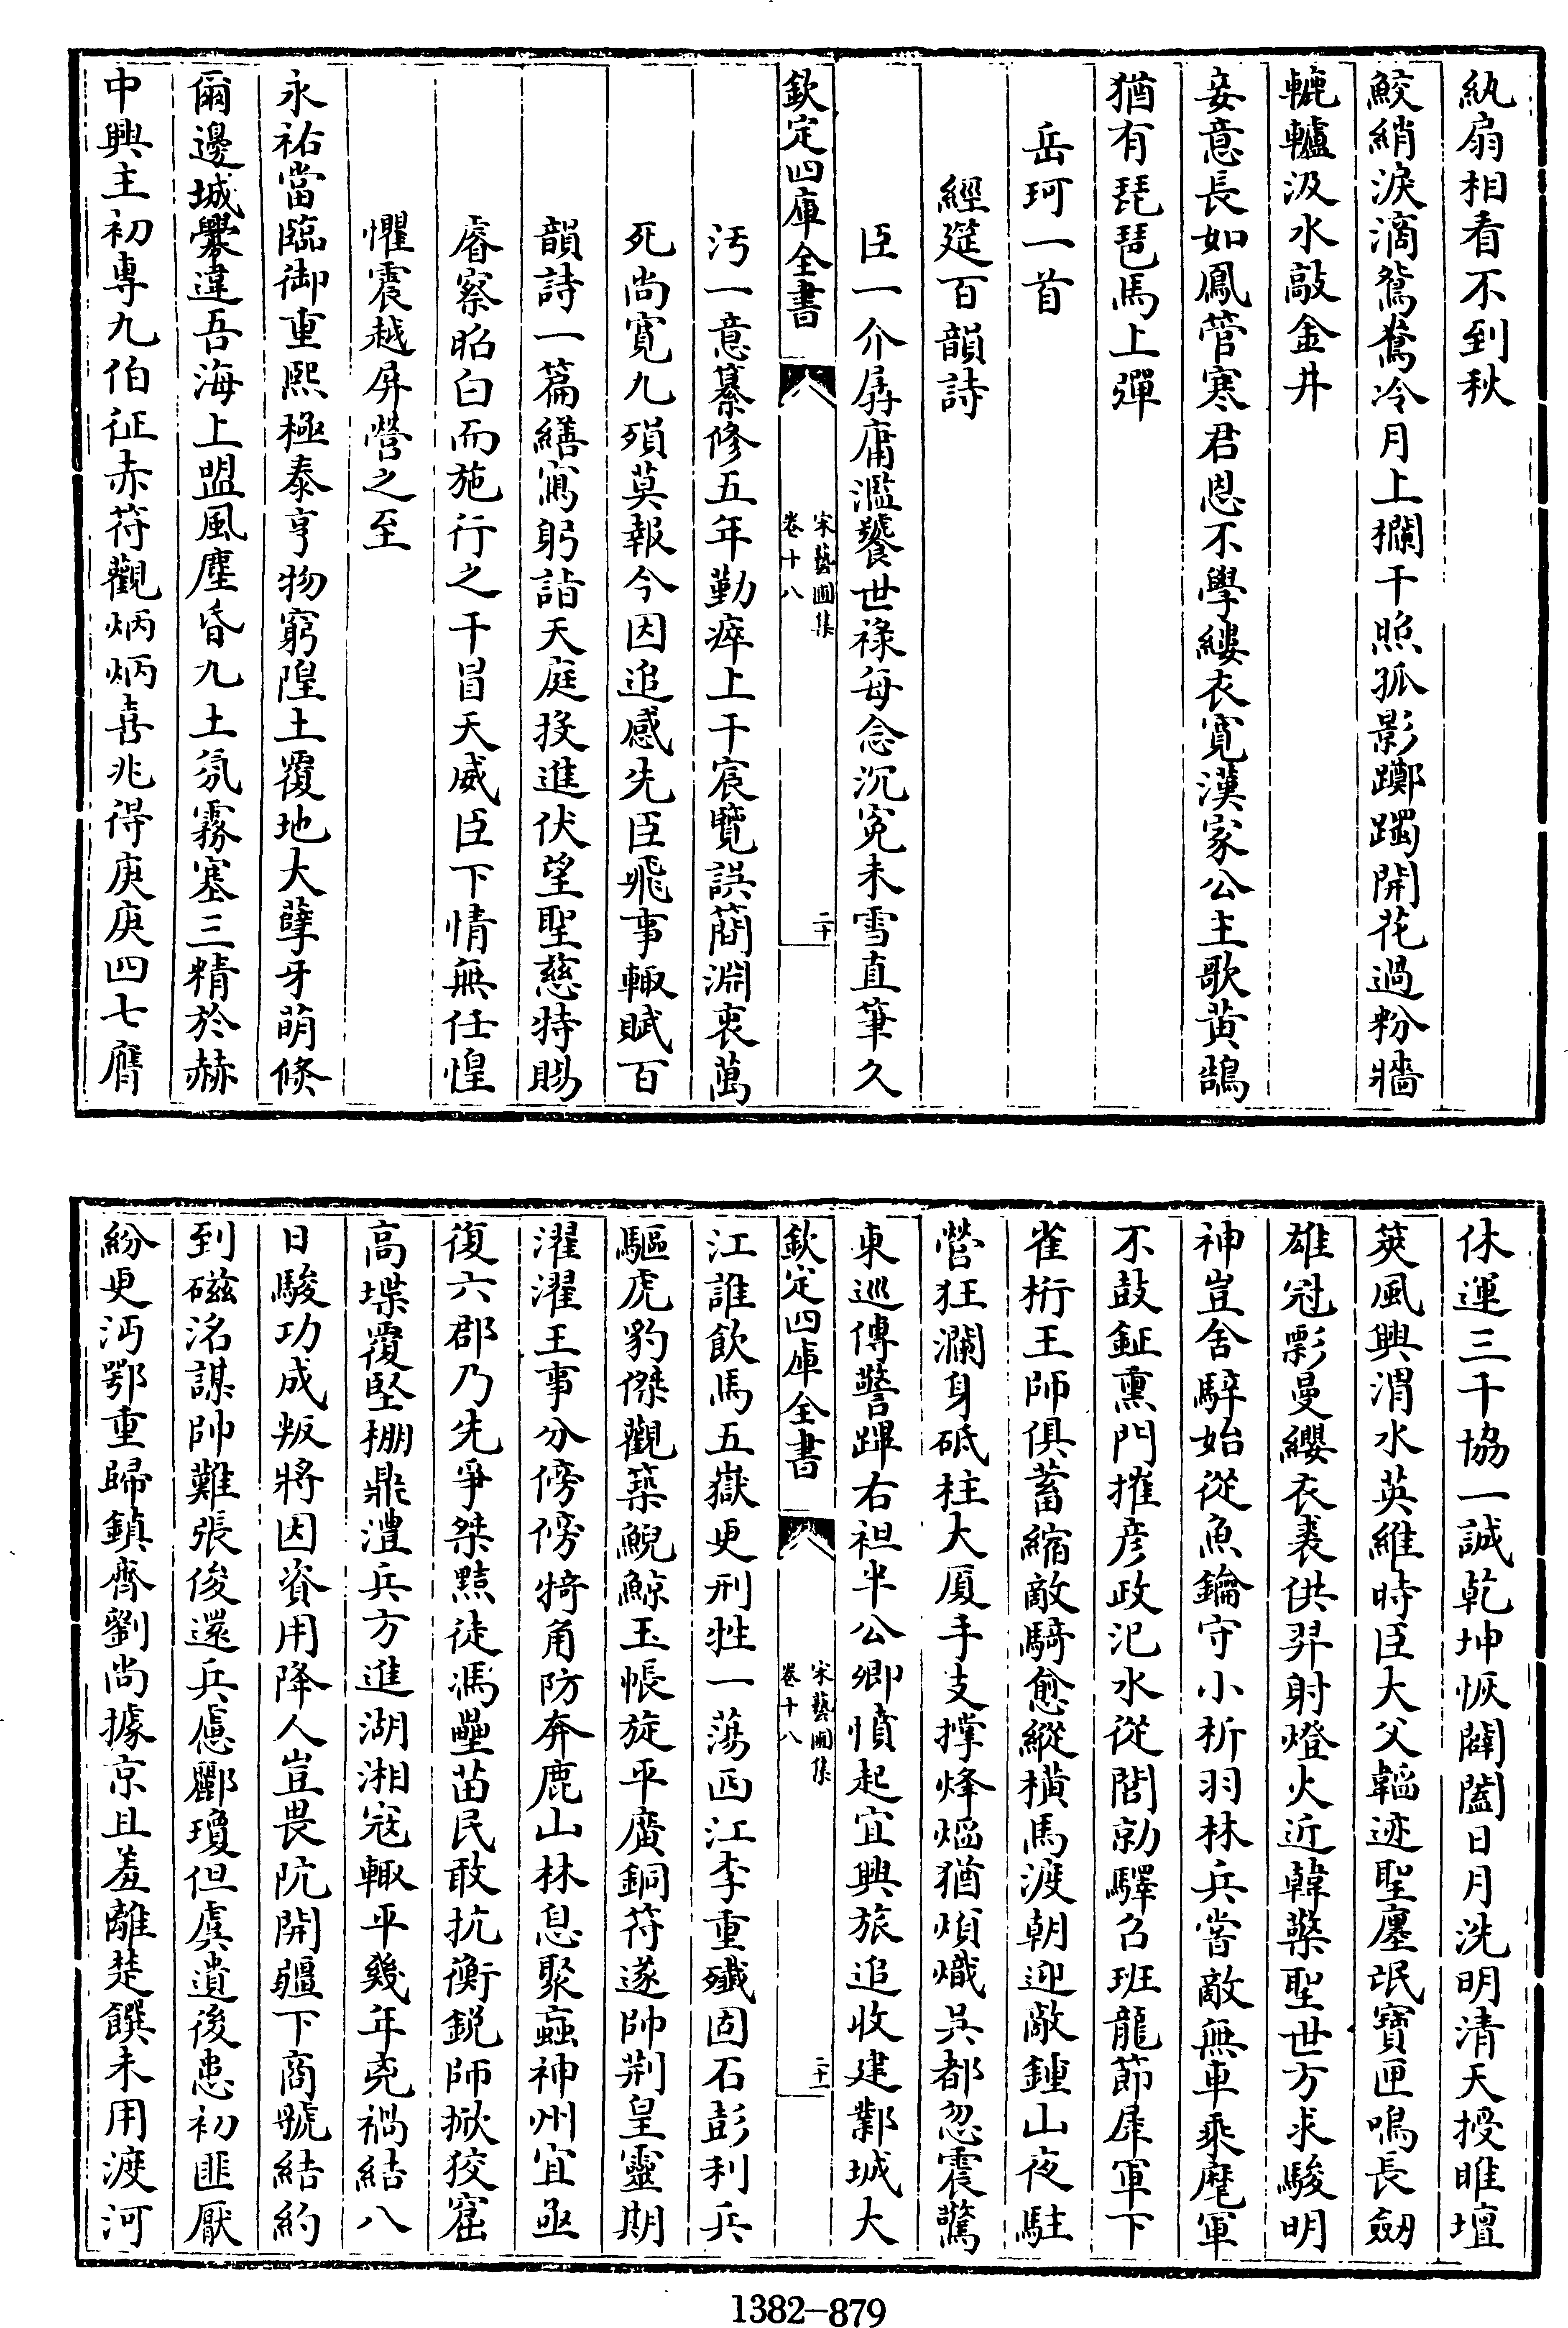 紈扇相看不到秋
鮫綃淚滴鴛鴦冷月上攔干照孤影躑躅開花過粉牆
轆轤汲水敲金井
妾意長如鳳管寒君恩不學縷衣寬漢家公主歌黄鵠
猶有琵琶馬上彈
岳珂一首
經筵百韻詩
臣一介孱庸濫饕世祿每念沉寃未雪直筆久
欽定四庫全書
宋藝圃集
卷十八
二十
汚一意纂修五年勤瘁上干宸覽誤簡淵衷萬
死尚寛九殞莫報今因追感先臣飛事輙賦百
韻詩一篇繕寫躬詣天庭投進伏望聖慈特賜
睿察昭白而施行之干冒天威臣下情無任惶
懼震越屏營之至
永祐當臨御重熙極泰亨物窮隍土覆地大孽牙萌倐
爾邊城釁違吾海上盟風塵昏九土氛霧塞三精於赫
中興主初專九伯征赤符觀炳炳喜兆得庚庚四七膺
休運三千協一誠乾坤恢闢闔日月洗明清天授睢壇
莢風興渭水英維時臣大父韜迹聖廛氓寶匣鳴長劒
雄冠彯曼纓衣裘供羿射燈火近韓檠聖世方求駿明
神豈舍騂始從魚鑰守小析羽林兵嘗敵無車乘麾軍
不鼓鉦熏門摧彦政汜水從閭勍驛召班龍節犀軍下
雀桁王師俱蓄縮敵騎愈縱横馬渡朝迎敵鍾山夜駐
營狂瀾身砥柱大厦手支撑烽熖猶煩熾吳都忽震驚
東巡傳警蹕右袒半公卿憤起宜興旅追收建鄴城大
欽定四庫全書
宋藝圃集
卷十八
二十一
江誰飲馬五嶽更刑牲一蕩西江李重殲固石彭利兵
驅虎豹傑觀築鯢鯨玉帳旋平廣銅符遂帥荆皇靈期
濯濯王事分傍傍犄角防奔鹿山林息聚蝱神州宜亟
復六郡乃先爭桀黠徒馮壘苗民敢抗衡鋭師掀狡窟
高堞覆堅棚鼎澧兵方進湖湘宼輙平幾年堯禍結八
日駿功成叛將因資用降人豈畏阬開疆下商虢結約
到磁洺謀帥難張俊還兵慮酈瓊但虞遺後患初匪厭
紛更沔鄂重歸鎮齊劉尚據京且羞離楚饌未用渡河
1382-879